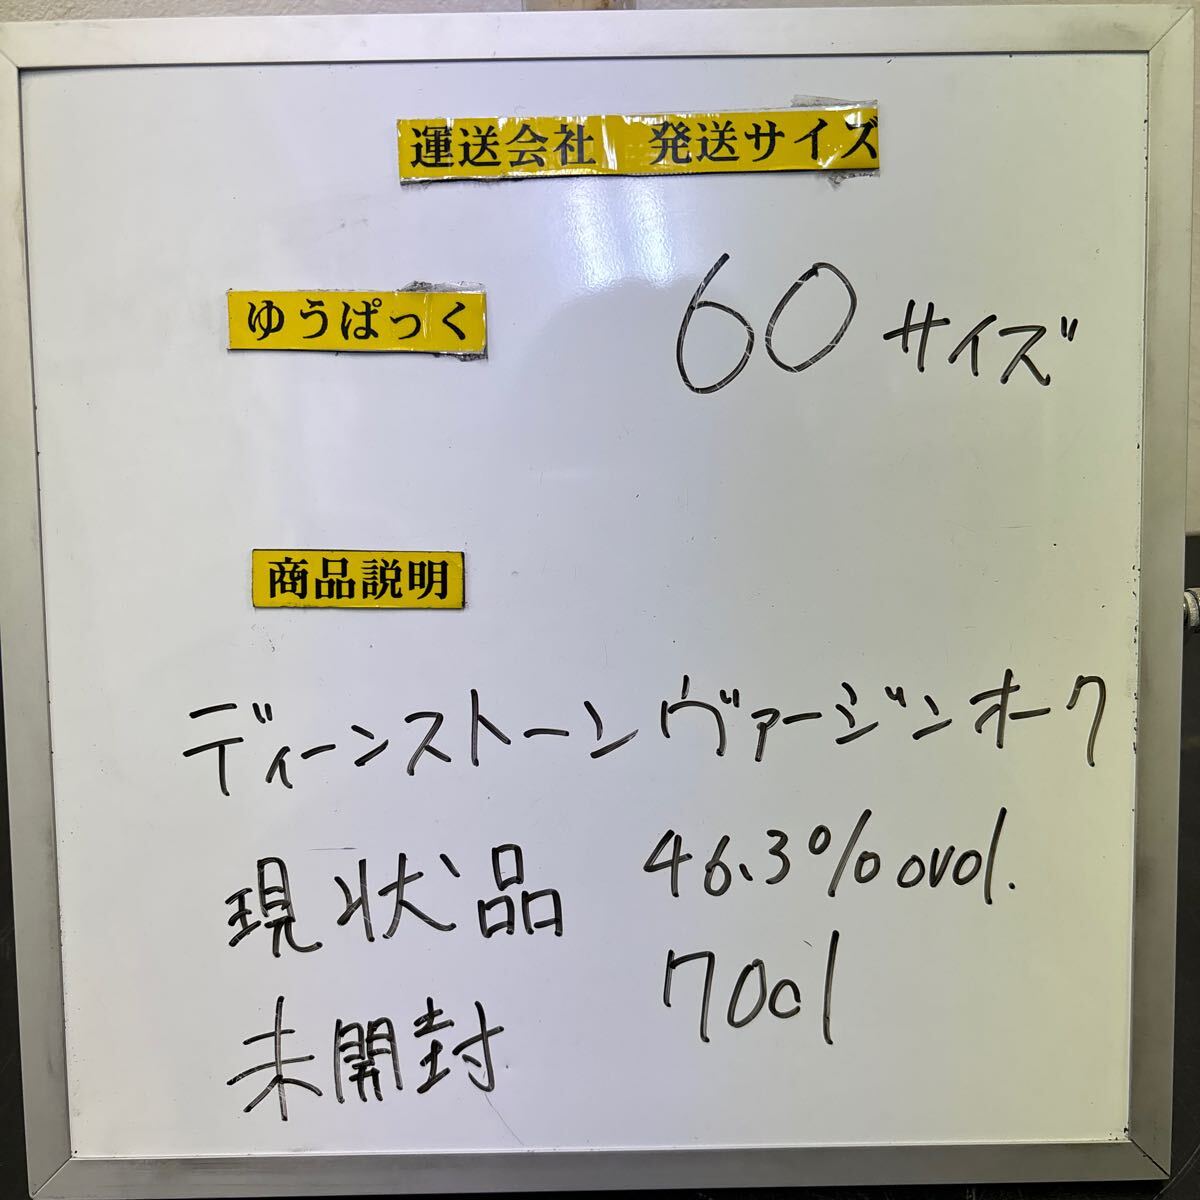 運送会社 発送サイズ
ゆうぱっく 60サイズ
商品説明
ディーンストーンヴァージンオーク
現状品 46.3%ovol.
未開封 70cl